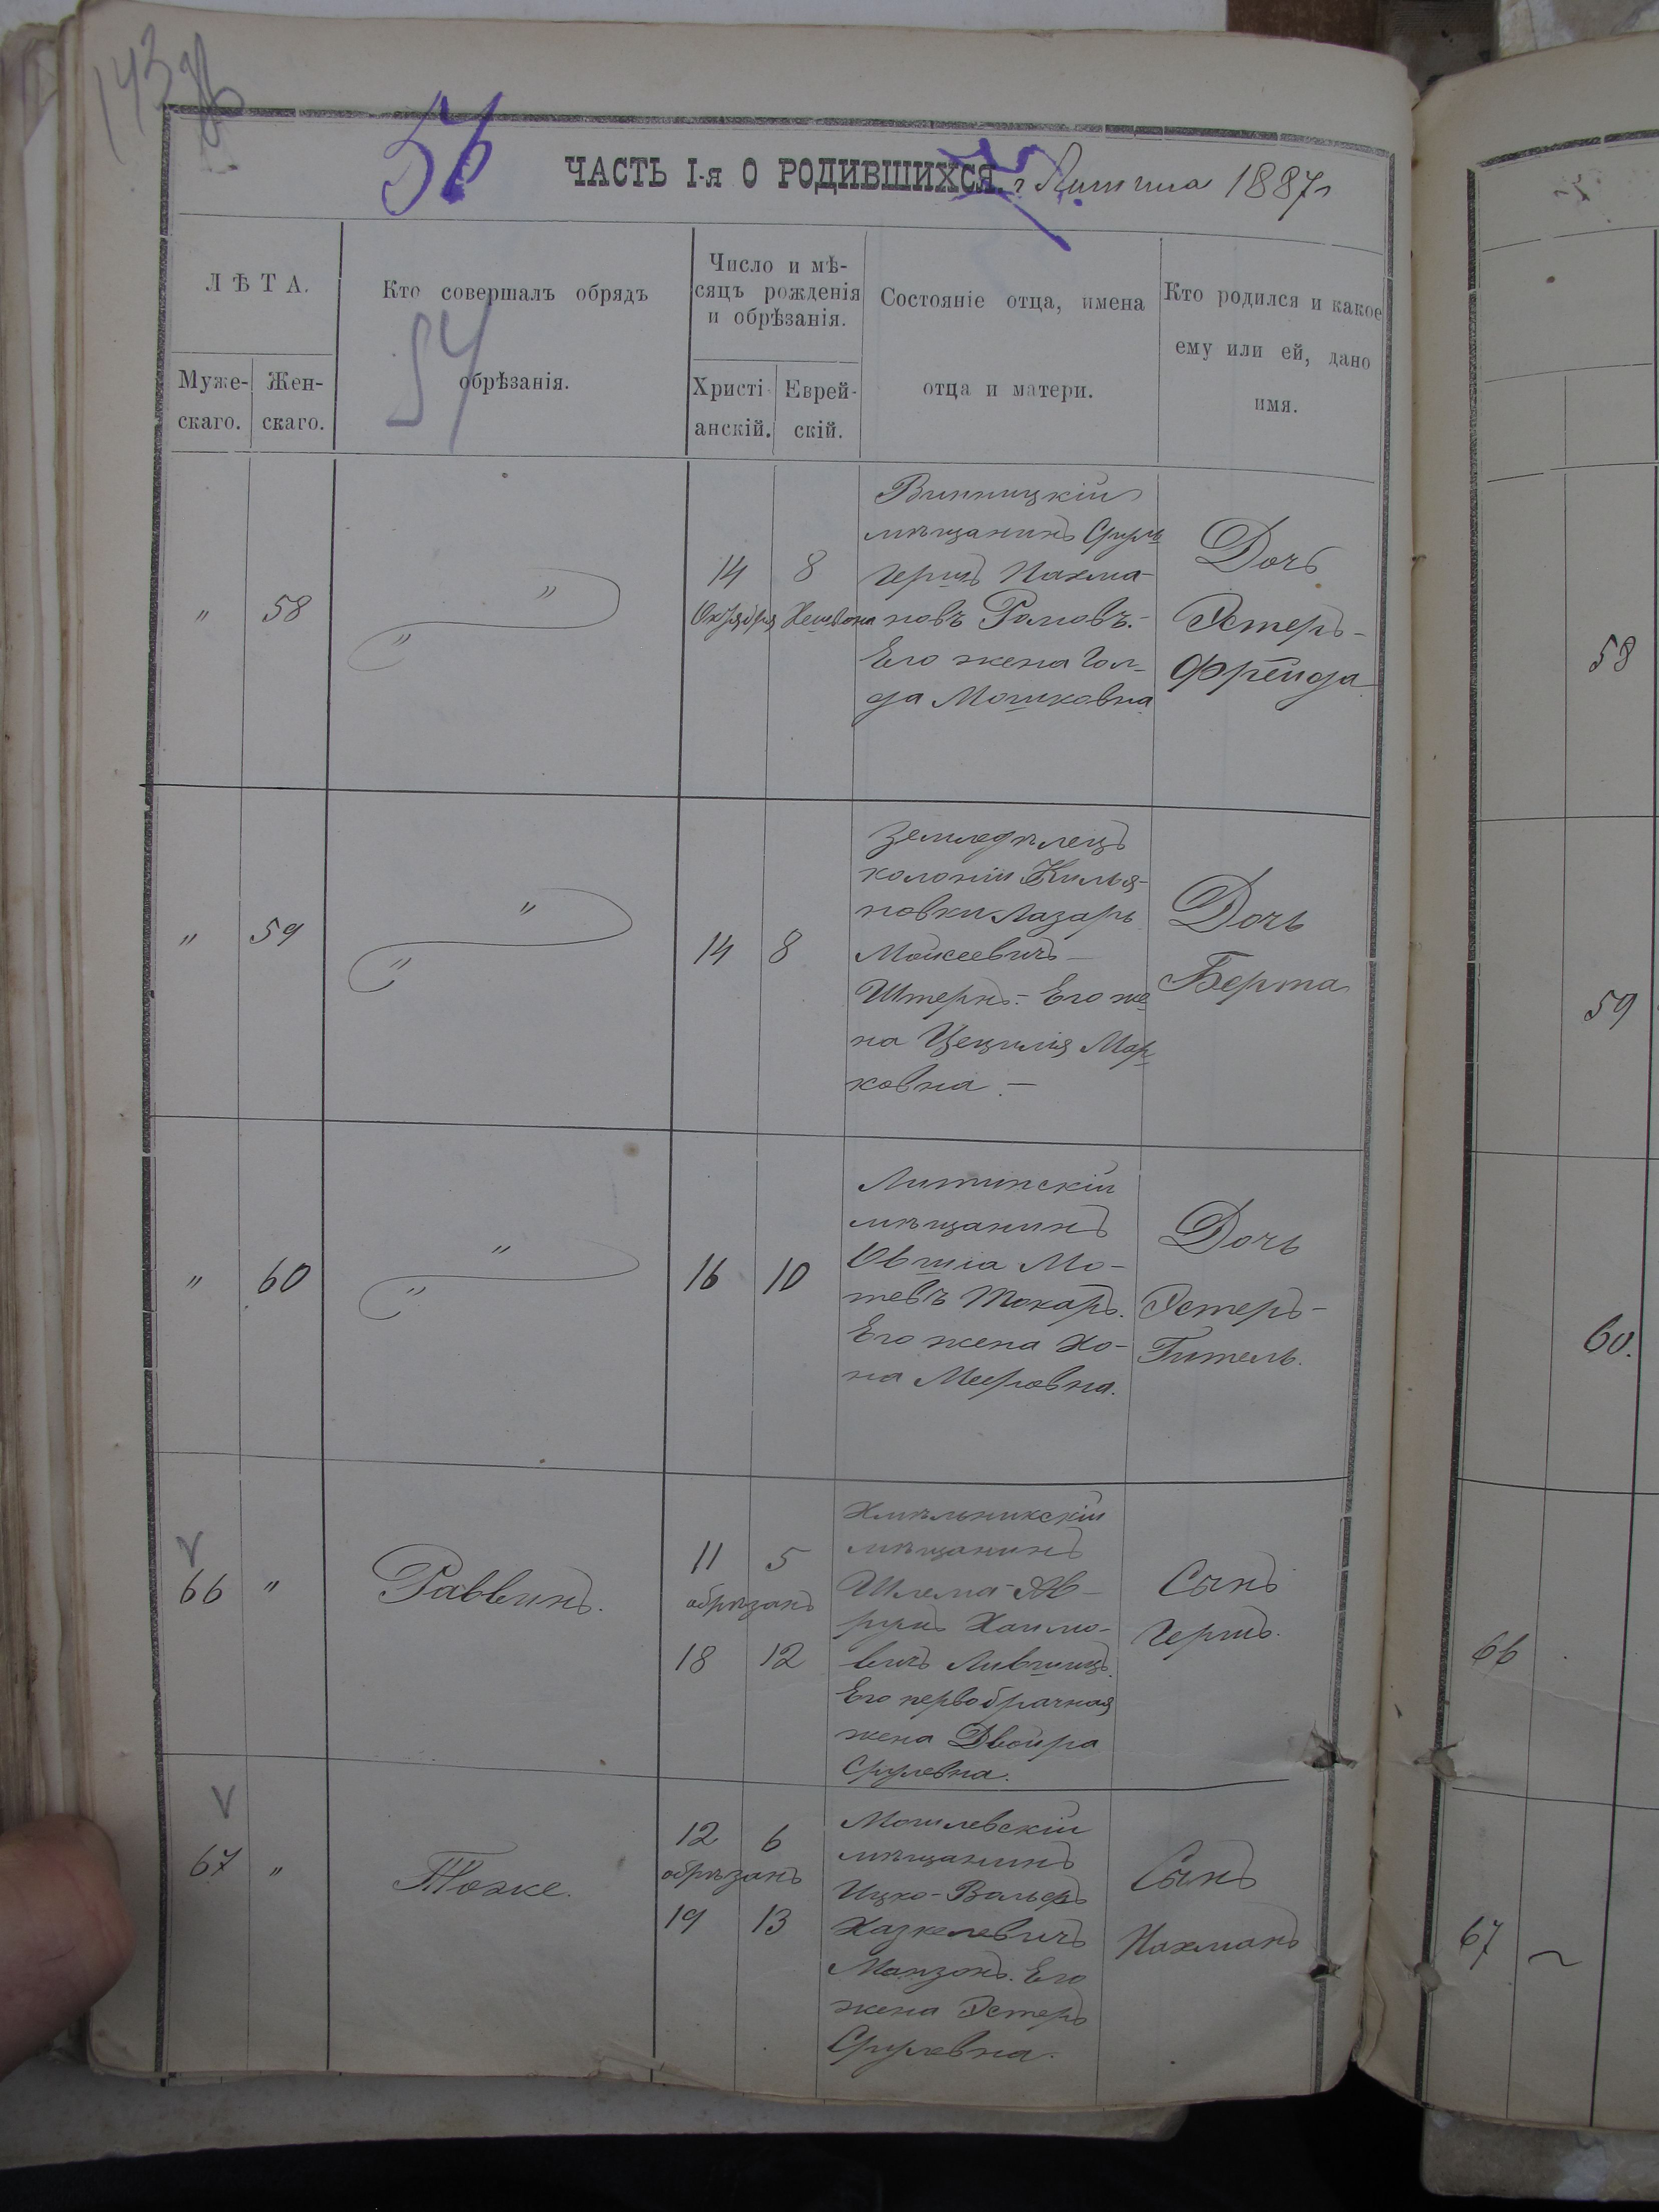 143
56
ЧАСТЬ I-я О РОДИВШИХСЯ. г Литина 1887 г
ЛѢТА.
Муже-
скаго.
Жен-
скаго.
Кто совершалъ обрядъ
обрѣзанія.
54
Число и мѣ-
сяцъ рожденія
и обрѣзанія.
Христі-
анскій.
Еврей-
скій.
Состояніе отца, имена
отца и матери.
Кто родился и какое
ему или ей, дано
имя.
" 58 " "
14 8
Октября Хешвона
Винницкій
мѣщанинъ Сруль
Гершъ Нахма-
новъ
Его жена Гол-
да Мошковна
Дочь
Эстеръ-
Фрейда
58
" 59 " "
14 8
Земледѣлецъ
колоніи
новки Лазарь
Моисеевичъ
Штернъ.- Его же
на Цецилія Мар
ковна. -
Дочь
Берта
59
" 60 " "
16 10
Литинскій
мѣщанинъ
Овшіа Мо-
тевъ Токарь.
Его жена Хо-
на Мееровна.
Дочь
Эстеръ-
Гитель.
60.
66 " Раввинъ.
11 5
обрѣзанъ
18 12
Хмѣльникскій
мѣщанинъ
Шлема-Ав-
румъ Хаимо-
вичъ Лившицъ.
Его первобрачная
жена Двойра
Срулевна.
Сынъ
Гершъ.
66
67 " Тоже.
12 6
обрѣзанъ
19 13
Могилевскій
мѣщанинъ
Ицко-Вольфъ
Хазкелевичъ
Манзонъ. Его
жена Эстеръ
Срулевна.
Сынъ
Нахманъ
67